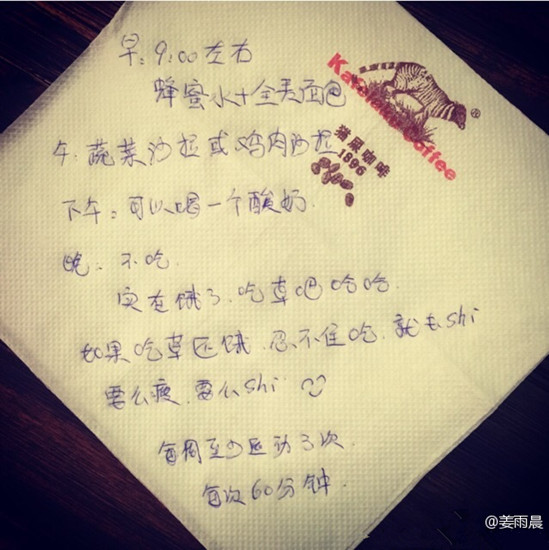 早：9:00左右
蜂蜜水+全麦面包
午.蔬菜沙拉或鸡肉沙拉
下午：可以喝一个酸奶.
晚.不吃.
实在饿了.吃草吧哈哈.
如果吃草还饿.忍不住吃.就去shi
要么瘦.要么shi
每周至少运动3次.
每次60分钟.
Kafelaku Coffee
®
猫屎咖啡
1896
@姜雨晨